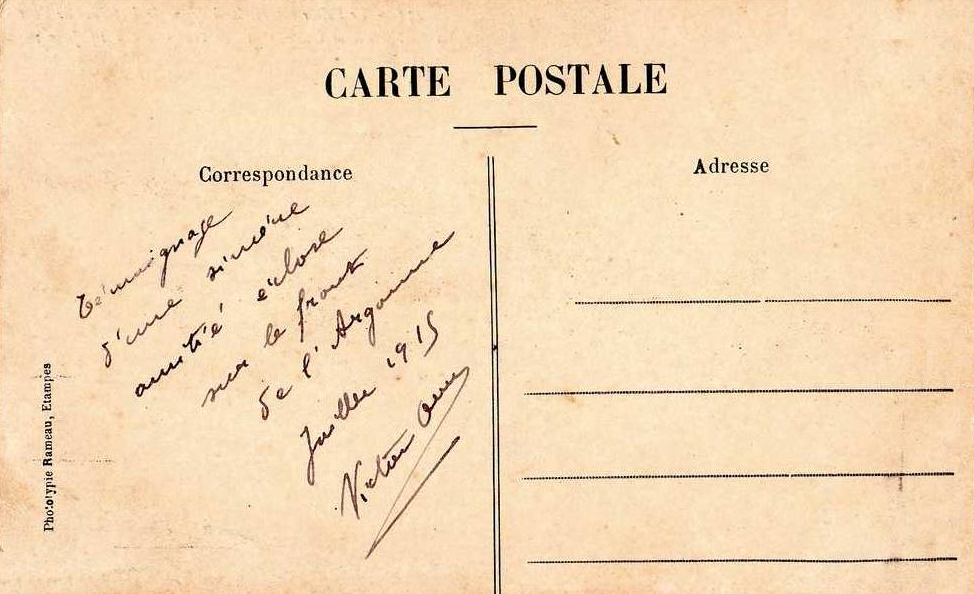 CARTE POSTALE
Correspondance
Adresse
Témoignage
d'une sincère
amitié éclose
sur le front
de l'Argonne
Juillet 1915
Victor
Phototypie Rameau, Etampes